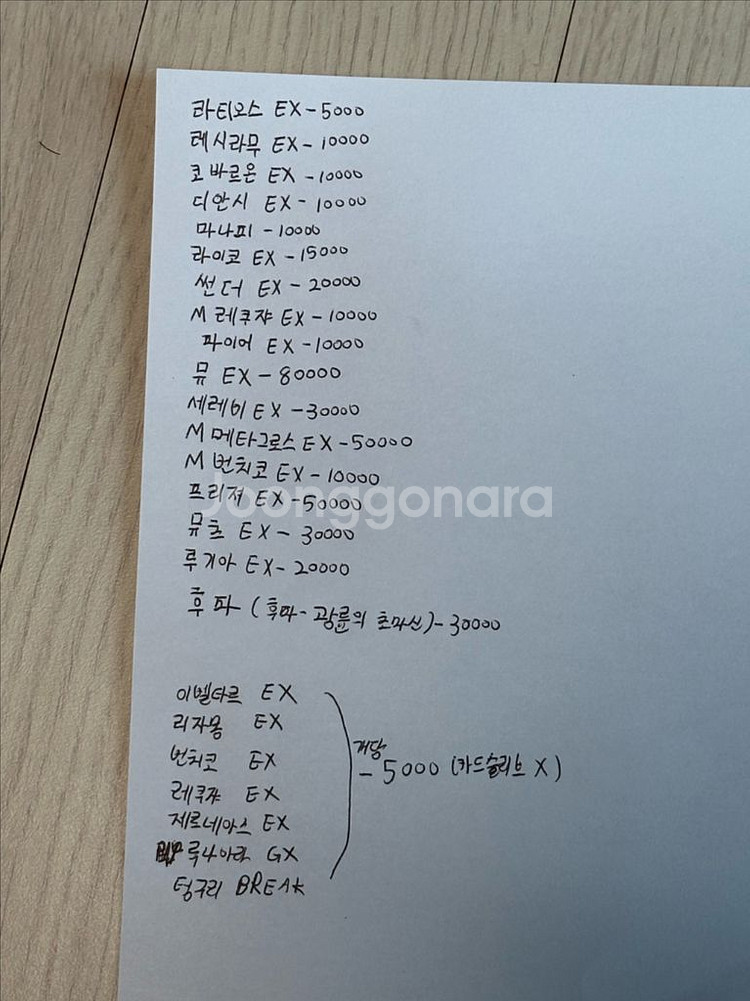 라티오스 EX - 5000
레시라무 EX - 10000
코바르온 EX - 10000
디안시 EX - 10000
마나피 - 10000
라이코 EX - 15000
썬더 EX - 20000
M 레쿠쟈 EX - 10000
파이어 EX - 10000
뮤 EX - 80000
세레비 EX - 30000
M 메타그로스 EX - 50000
M 번치코 EX - 10000
프리져 EX - 50000
Joonggonara
뮤츠 EX - 30000
루기아 EX - 20000
후파 (후파 - 광륜의 초마신) - 30000
이벨타르 EX
리자몽 EX
번치코 EX
개당 - 5000 (카드슬리브 X)
레쿠쟈 EX
제르네아스 EX
루나아라 GX
텅구리 BREAK